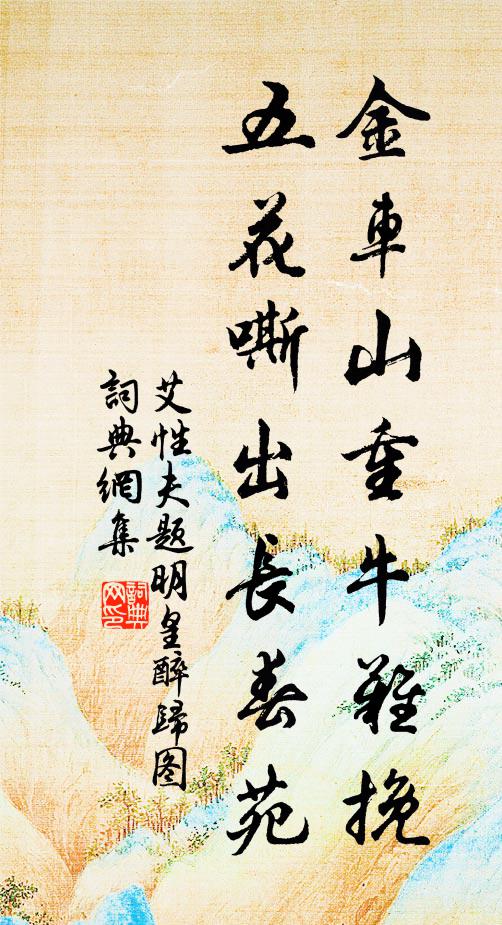 金車山重牛難挽
五花嘶出長春苑
艾性夫題明皇醉歸图
詞典網集
詞典
网印